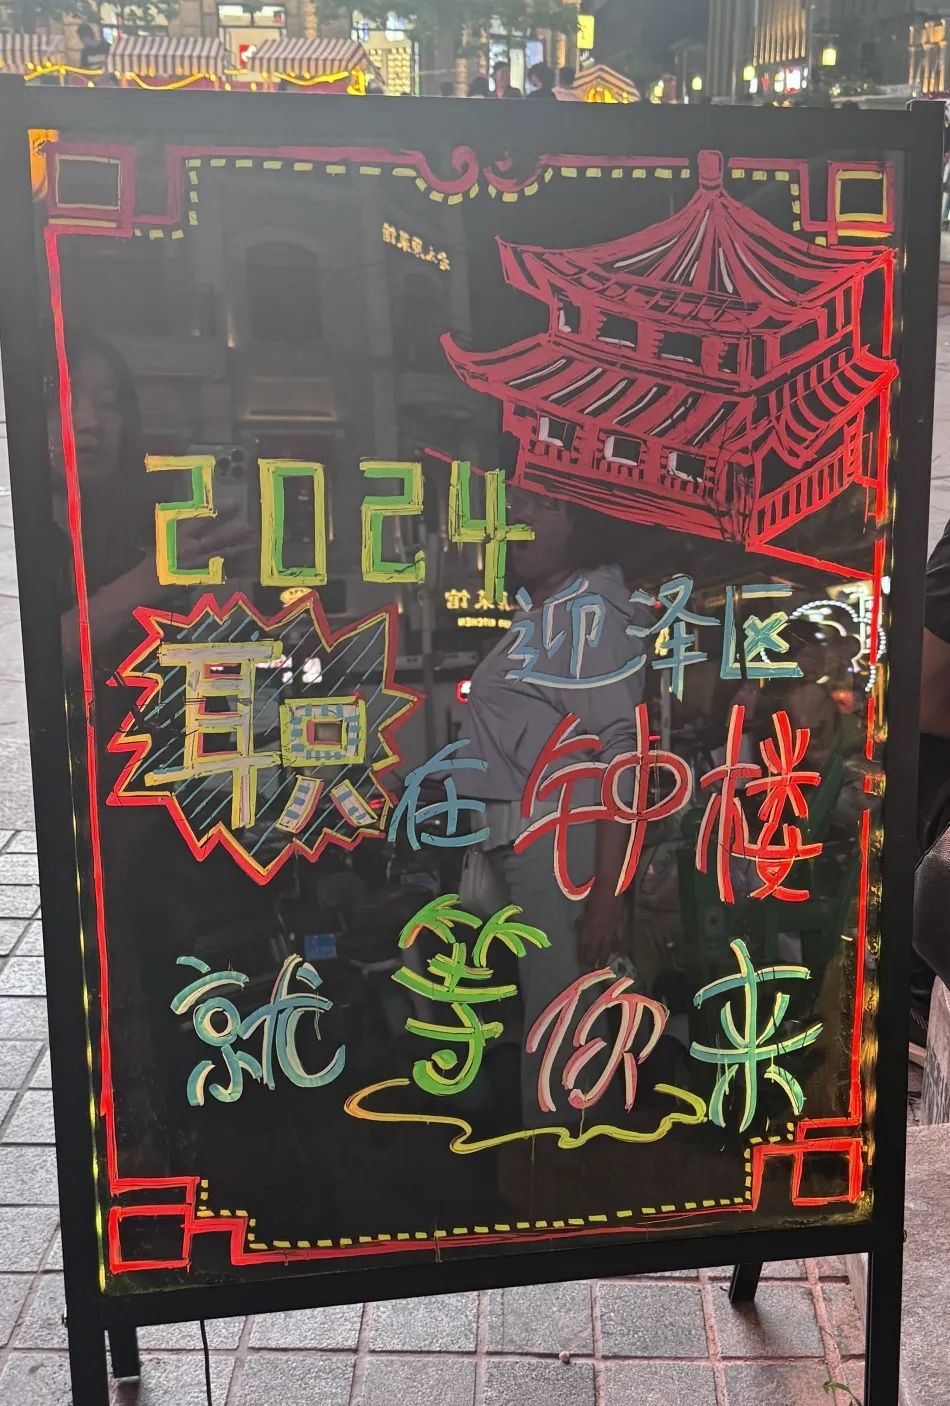 2024
迎泽区
职在钟楼
就等你来